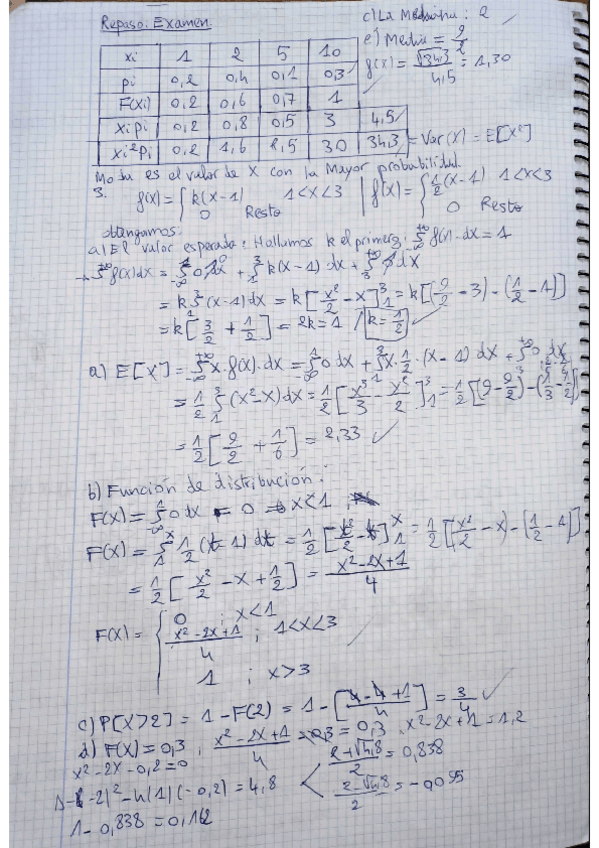 Repaso: Examen
c) La Mediana: 2
e) Media = 9/2
xi 1 2 5 10
pi 0,2 0,4 0,1 0,3
F(xi) 0,2 0,6 0,7 1
xi pi 0,2 0,8 0,5 3 4,5
xi²pi 0,2 1,6 2,5 30 34,3 = Var(X) = E[X²]
g(x) = √34,3 / 4,5 = 1,30
Moda es el valor de X con la Mayor probabilidad.
3. f(x) = { k(x-1) 1<x<3 | f(x) = { 1/2(x-1) 1<x<3
0 Resto 0 Resto
obtengamos:
a) El valor esperado: Hallamos k el primero, ∫_{-∞}^{+∞} f(x)·dx = 1
→ ∫_{-∞}^{+∞} f(x)dx = ∫_{-∞}^{1} 0 dx + ∫_{1}^{3} k(x-1) dx + ∫_{3}^{+∞} 0 dx
= k ∫_{1}^{3} (x-1) dx = k[x²/2 - x]_{1}^{3} = k[(9/2 - 3) - (1/2 - 1)]
= k[3/2 + 1/2] = 2k = 1 / k = 1/2
a) E[X] = ∫_{-∞}^{+∞} x·f(x)·dx = ∫_{-∞}^{1} 0 dx + ∫_{1}^{3} x·1/2·(x-1) dx + ∫_{3}^{+∞} 0 dx
= 1/2 ∫_{1}^{3} (x²-x) dx = 1/2 [x³/3 - x²/2]_{1}^{3} = 1/2 [(9 - 9/2) - (1/3 - 1/2)]
= 1/2 [9/2 + 1/6] = 2,33
b) Función de distribución:
F(x) = ∫_{-∞}^{1} 0 dx = 0 → x<1
F(x) = ∫_{1}^{x} 1/2 (t-1) dt = 1/2 [t²/2 - t]_{1}^{x} = 1/2 [(x²/2 - x) - (1/2 - 1)]
= 1/2 [x²/2 - x + 1/2] = x²-2x+1 / 4
F(x) = { 0 ; x<1
x²-2x+1 / 4 ; 1<x<3
1 ; x>3
c) P[X>2] = 1 - F(2) = 1 - [4-4+1 / 4] = 3/4
d) F(x) = 0,3 ; x²-2x+1 / 4 = 0,3 x²-2x+1 = 1,2
x²-2x-0,2=0
(-2)²-4(1)(-0,2) = 4,8 < 2+√4,8 / 2 = 0,838
2-√4,8 / 2 = -0,0955
1-0,838 = 0,162